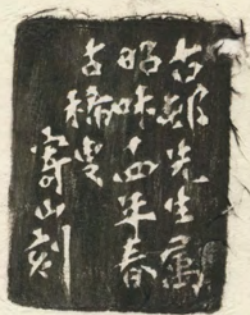 邨先生属
昭咊年春
古稀叟
寄山刻